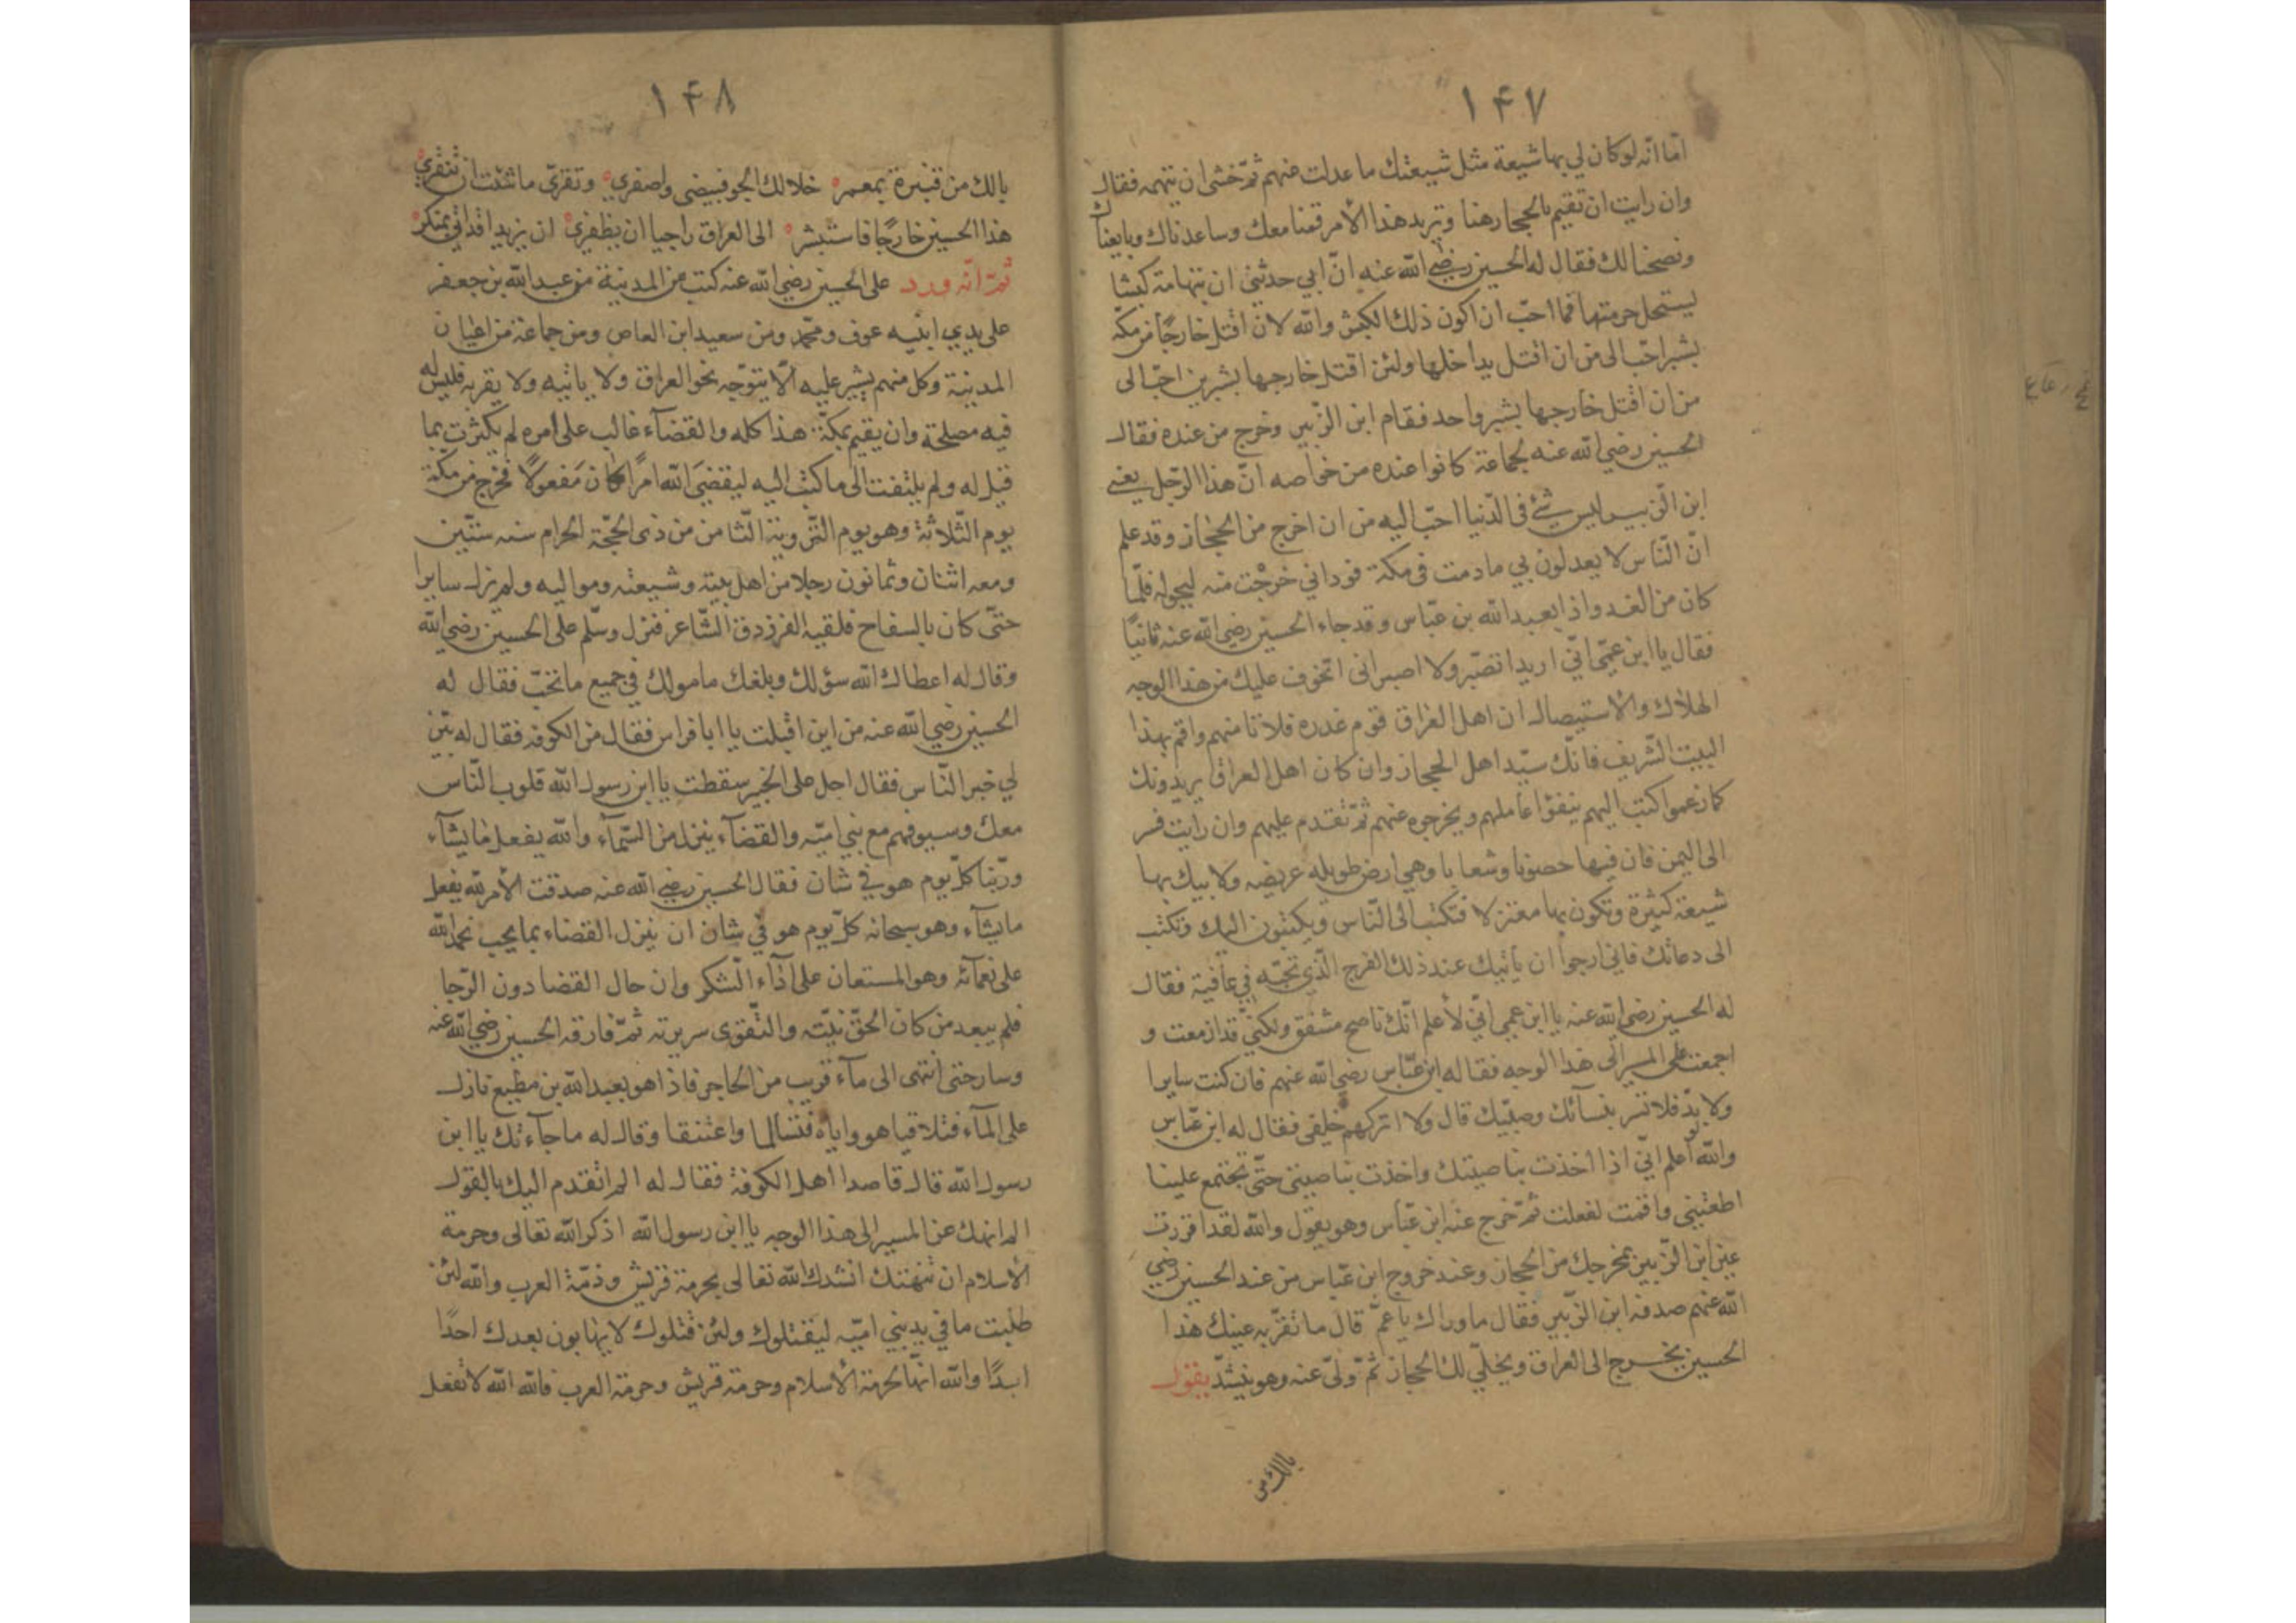 ١۴٧
اما انّه لو كان لي بها شيعة مثل شيعتك ما عدلت عنهم ثمّ خشى ان يتهمه فقال
وان رايت ان تقيم بالحجاز هنا وتريد هذا الأمر قمنا معك وساعدناك وبايعناك
ونصحنا لك فقال له الحسين رضي الله عنه انّ ابي حدثني ان بتهامة كبشا
يستحل حرمتها فما احبّ ان اكون ذلك الكبش والله لان اقتل خارجًا من مكة
بشبر احبّ الى من ان اقتل بداخلها ولئن اقتل خارجها بشبرين احبّ الى
من ان اقتل خارجها بشبر واحد فقام ابن الزّبير وخرج من عنده فقال
الحسين رضي الله عنه لجماعة كانوا عنده من خواصه انّ هذا الرّجل يعني
ابن الزّبير ليس شئ في الدّنيا احبّ اليه من ان اخرج من الحجاز وقد علم
انّ النّاس لا يعدلون بي ما دمت في مكة فود اني خرجت منه ليحوله فلمّا
كان من الغد واذا بعبد الله بن عبّاس وقد جاء الحسين رضي الله عنه ثانيًا
فقال يا ابن عمّي انّي اريد اتصبّر ولا اصبر انى اتخوف عليك من هذا الوجه
الهلاك والاستيصال ان اهل العراق قوم غدره فلا تامنهم واقم بهذا
البيت الشّريف فانّك سيّد اهل الحجاز وان كان اهل العراق يريدونك
كما زعموا اكتب اليهم ينفوا عاملهم ويخرجوه عنهم ثمّ تقدم عليهم وان رايت فسر
الى اليمن فان فيها حصونا وشعابا وهي ارض طويله عريضه ولابيك بها
شيعة كثيرة وتكون بها معتزلا فتكتب الى النّاس ويكتبون اليك وتكتب
الى دعاتك فاني ارجوا ان ياتيك عند ذلك الفرج الّذي تحبّه في عافية فقال
له الحسين رضي الله عنه يا ابن عمي انّي لأعلم انّك ناصح مشفق ولكنّي قد ازمعت و
اجمعت على المسير الى هذا الوجه فقال له ابن عبّاس رضي الله عنهم فان كنت سايرا
ولا بدّ فلا تسر بنسآئك وصبيّك قال ولا اتركهم خلفي فقال له ابن عبّاس
والله لو اعلم انّي اذا اخذت بناصيتك واخذت بناصيتي حتّى تجتمع علينا
اطعتني واقمت لفعلت ثمّ خرج عنه ابن عبّاس وهو يقول والله لقد اقررت
عين ابن الزّبير بمخرجك من الحجاز وعند خروج ابن عبّاس من عند الحسين رضي
الله عنهم صدفه ابن الزّبير فقال ما وراك يا عمّ قال ما تقرّ به عينك هذا
الحسين يخرج الى العراق ويخلّي لك الحجاز ثمّ ولّى عنه وهو ينشد يقول
يالك من
١۴٨
يالك من قنبرة بمعمر خلا لك الجو فبيضى واصفري وتقري ما شئت ان تنقري
هذا الحسين خارجًا فاستبشر الى العراق راجيا ان يظفري ان يزيدا
ثمّ انّه ورد على الحسين رضي الله عنه كتب من المدينة من عبد الله بن جعفر
على يدي ابنيه عوف ومحمّد ومن سعيد ابن العاص ومن جماعة من اعيان
المدينة وكل منهم يشير عليه الّا يتوّجه نحو العراق ولا ياتيه ولا يقربه فليس له
فيه مصلحة وان يقيم بمكّة هذا كله والقضآء غالب على امره لم يكترث بما
قيل له ولم يلتفت الى ما كتب اليه ليقضيَ الله امرًا كان مَفعولًا فخرج من مكة
يوم الثّلاثة وهو يوم التّروية الثّامن من ذى الحجّة الحرام سنه ستّين
ومعه اثنان وثمانون رجلا من اهل بيته وشيعته ومواليه ولم يزل سايرا
حتّى كان بالسفاح فلقيه الفرزدق الشّاعر فنزل وسلّم على الحسين رضي الله
وقال له اعطاك الله سؤلك وبلغك مامولك في جميع ما تحبّ فقال له
الحسين رضي الله عنه من اين اقبلت يا ابا فراس فقال من الكوفه فقال له بيّن
لي خبر النّاس فقال اجل على الخبير سقطت يا ابن رسول الله قلوب النّاس
معك وسيوفهم مع بني اميّه والقضآء ينزل من السّمآء والله يفعل ما يشآء
وربّنا كلّ يوم هو في شان فقال الحسين رضي الله عنه صدقت الأمر لله يفعل
ما يشآء وهو سبحانه كلّ يوم هو في شان ان ينزل القضاء بما يحب نحمد الله
على نعمآئه وهو المستعان على ادآء الشّكر وان حال القضا دون الرّجا
فلم يبعد من كان الحقّ نيّته والتّقوى سريرته ثمّ فارقه الحسين رضي الله عنه
وسار حتى انتهى الى مآء قريب من الحاجر فاذا هو بعبد الله بن مطيع نازل
على المآء فتلاقيا هو واياه فتسالما واعتنقا وقال له ما جآء بك يا ابن
رسول الله قال قاصدا اهل الكوفة فقال له الم اتقدم اليك بالقول
الم انهك عن المسير الى هذا الوجه يا ابن رسول الله اذكر الله تعالى وحرمة
الأسلام ان تنهتك انشدك الله تعالى بحرمة قريش وذمّة العرب والله لئن
طلبت ما في يد بني اميّه ليقتلوك ولئن قتلوك لا يهابون بعدك احدًا
ابدًا والله انّها لحرمة الأسلام وحرمة قريش وحرمة العرب فالله الله لا تفعل